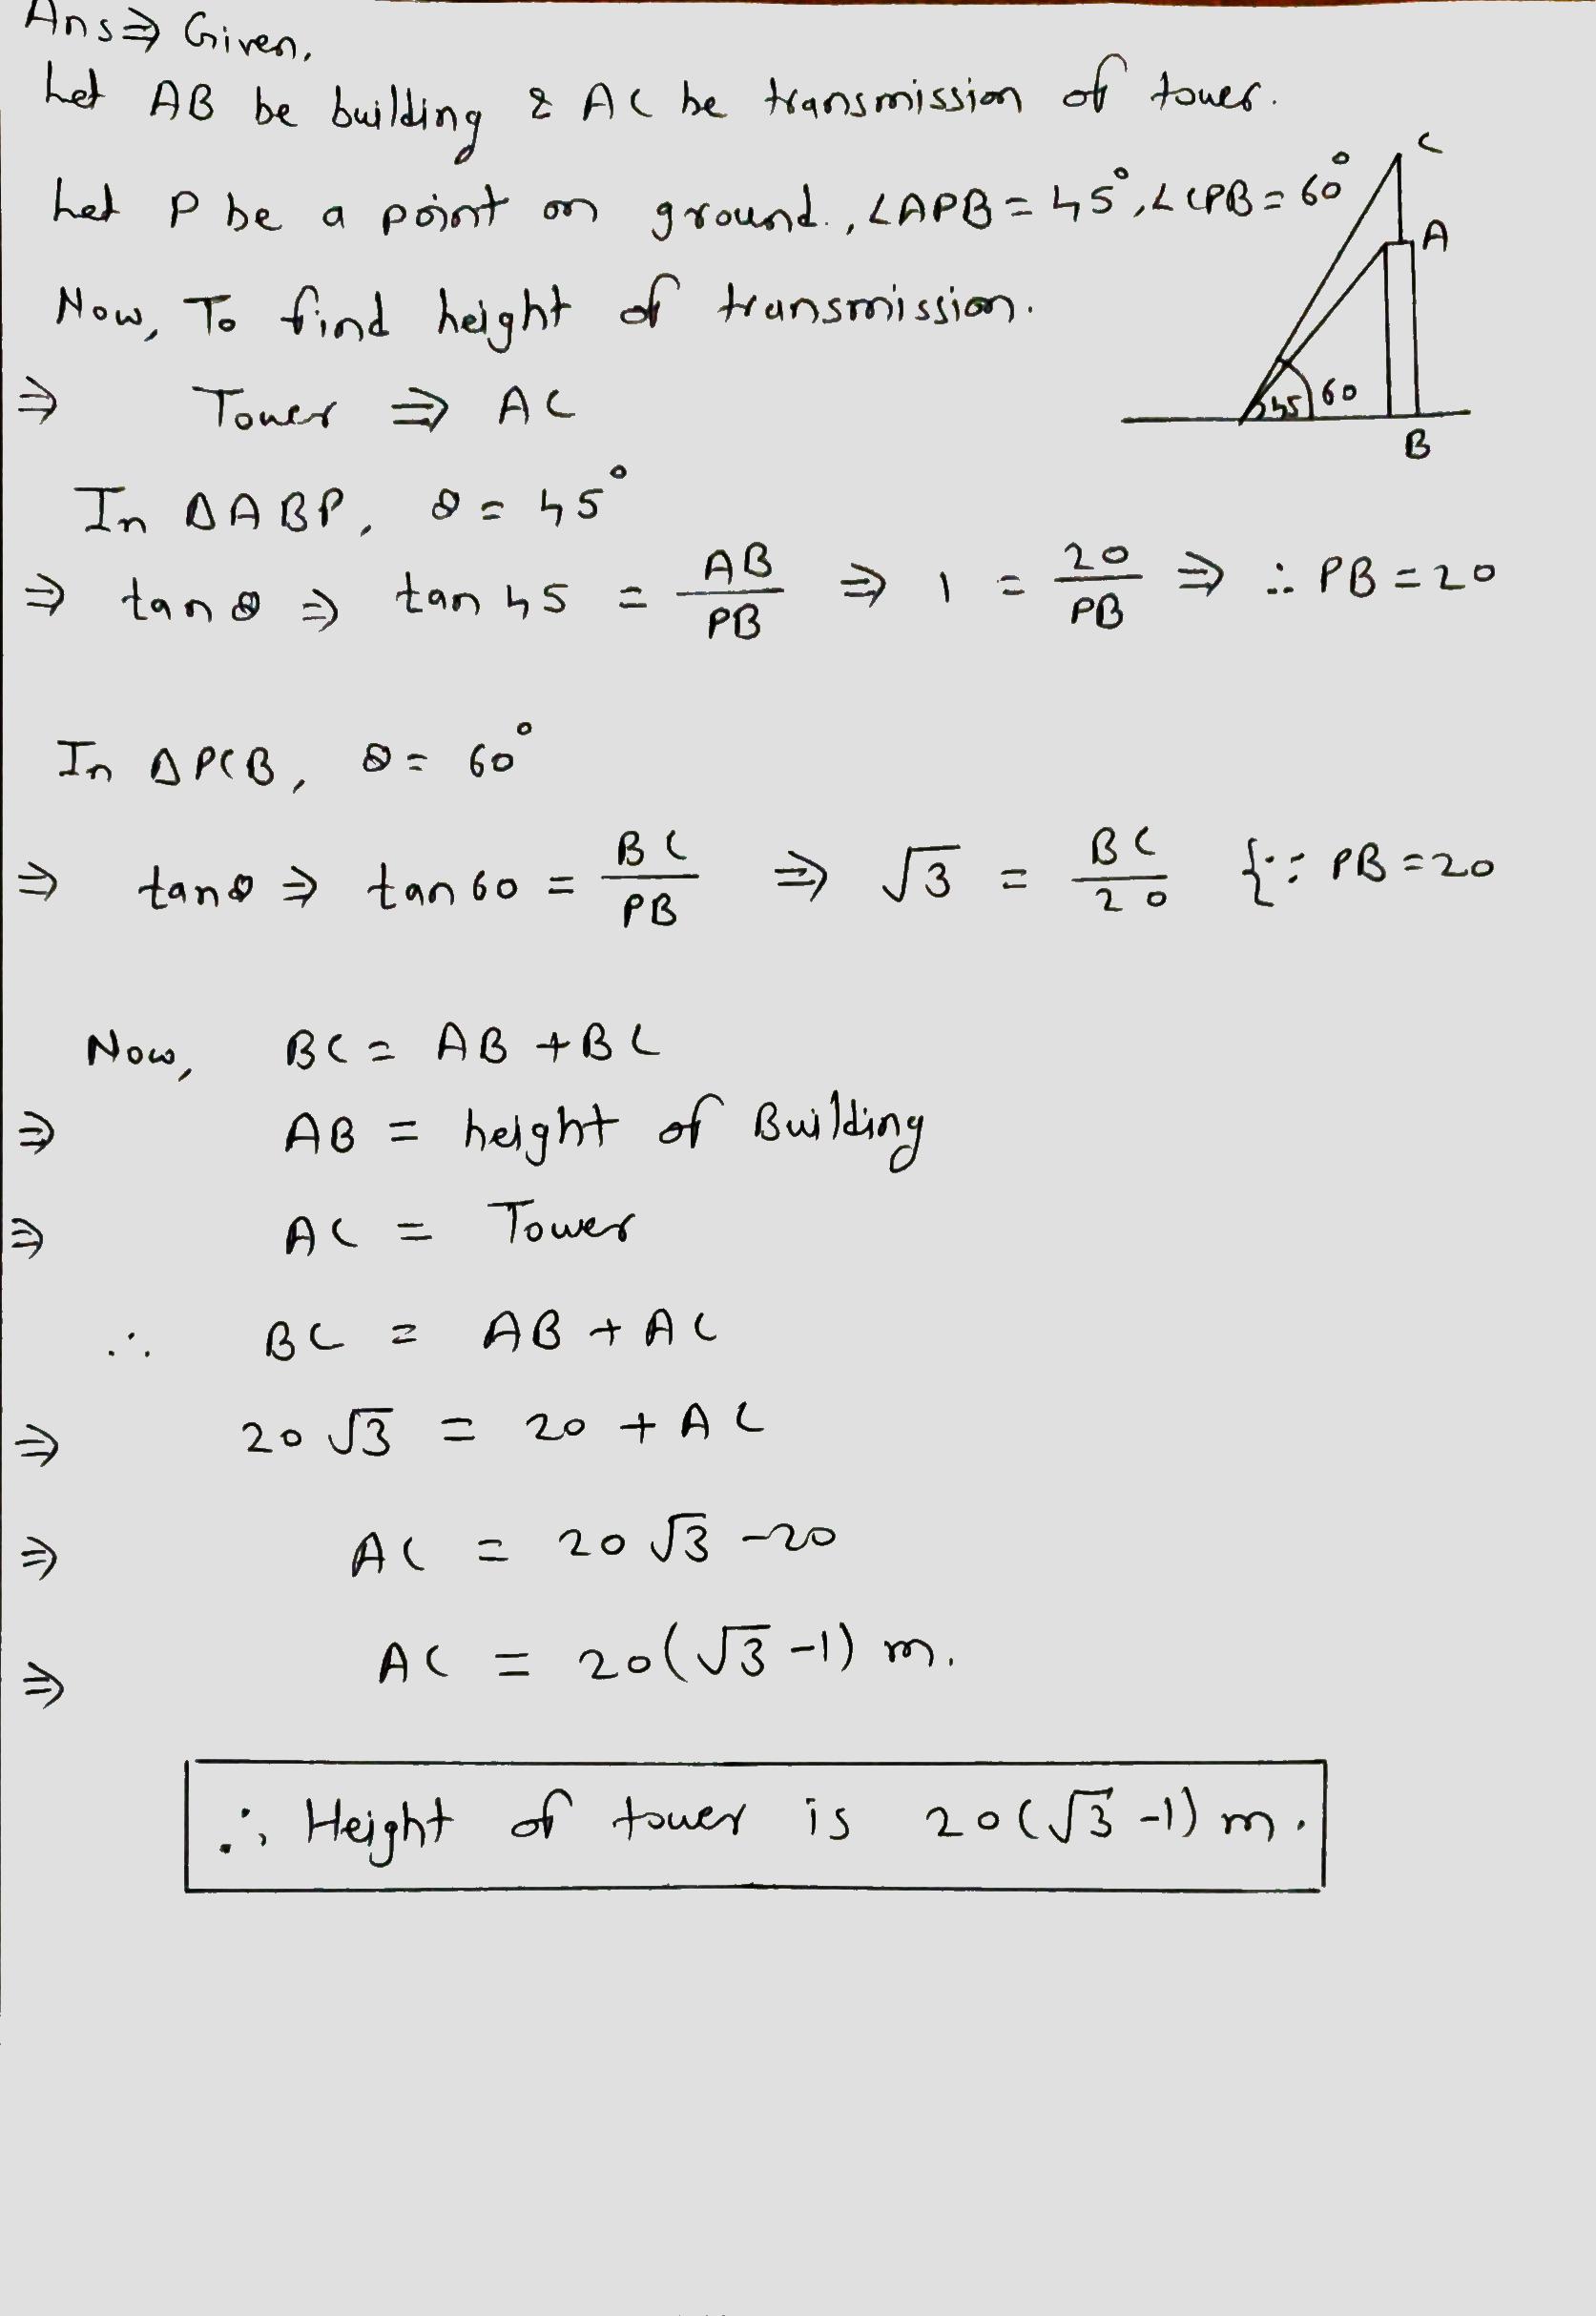 Ans⇒ Given,
Let AB be building & AC be transmission of tower.
Let P be a point on ground., ∠APB = 45°, ∠CPB = 60°
C
A
Now, To find height of transmission.
⇒ Tower ⇒ AC
45 60
B
In ΔABP, θ = 45°
⇒ tanθ ⇒ tan 45 = AB/PB ⇒ 1 = 20/PB ⇒ ∴ PB = 20
In ΔPCB, θ = 60°
⇒ tanθ ⇒ tan 60 = BC/PB ⇒ √3 = BC/20 {∵ PB = 20
Now, BC = AB + BC
⇒ AB = height of Building
⇒ AC = Tower
∴ BC = AB + AC
⇒ 20√3 = 20 + AC
⇒ AC = 20√3 - 20
⇒ AC = 20(√3 - 1) m.
∴ Height of tower is 20(√3 - 1) m.